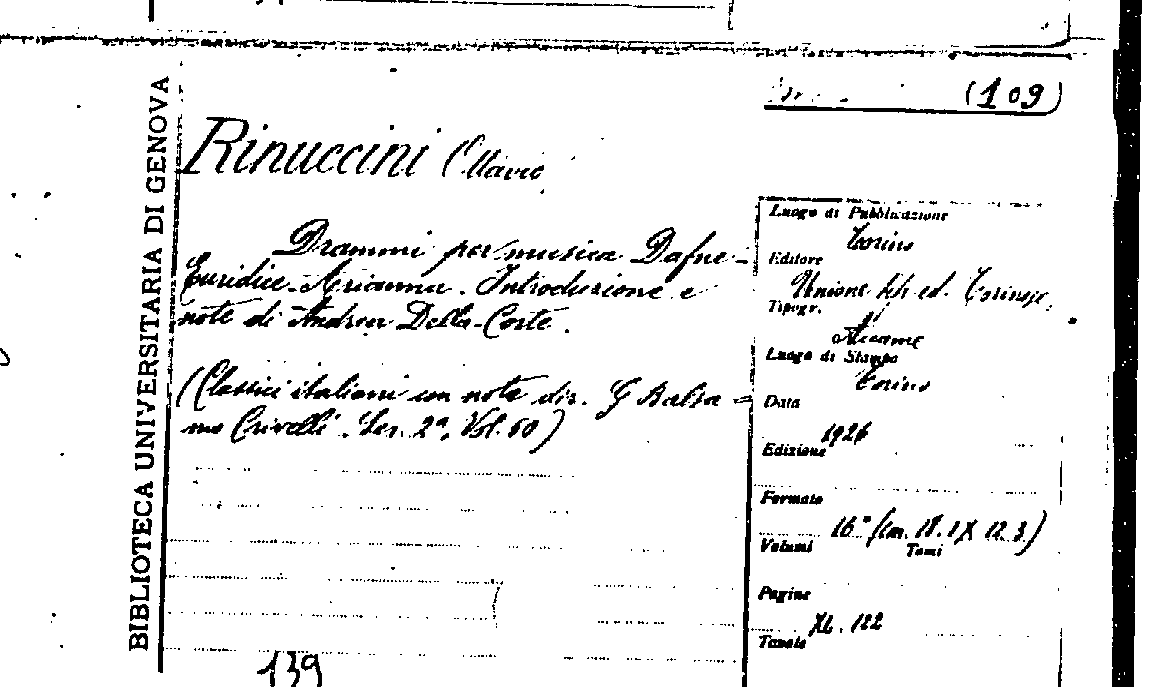 BIBLIOTECA UNIVERSITARIA DI GENOVA
(109)
Rinuccini Ottavio
Drammi per musica Dafne -
Euridice - Arianna. Introduzione e
note di Andrea Della-Corte.
(Classici italiani con note dir. G Balsa =
mo Crivelli. Ser. 2ª, Vol. 60)
139
Luogo di Pubblicazione
Torino
Editore
Unione tip. ed. Torinese
Tipogr.
Accame
Luogo di Stampa
Torino
Data
1926
Edizione
Formato
16° (cm. 18.1 X 12.3)
Volumi
Tomi
Pagine
XL. 122
Tavole